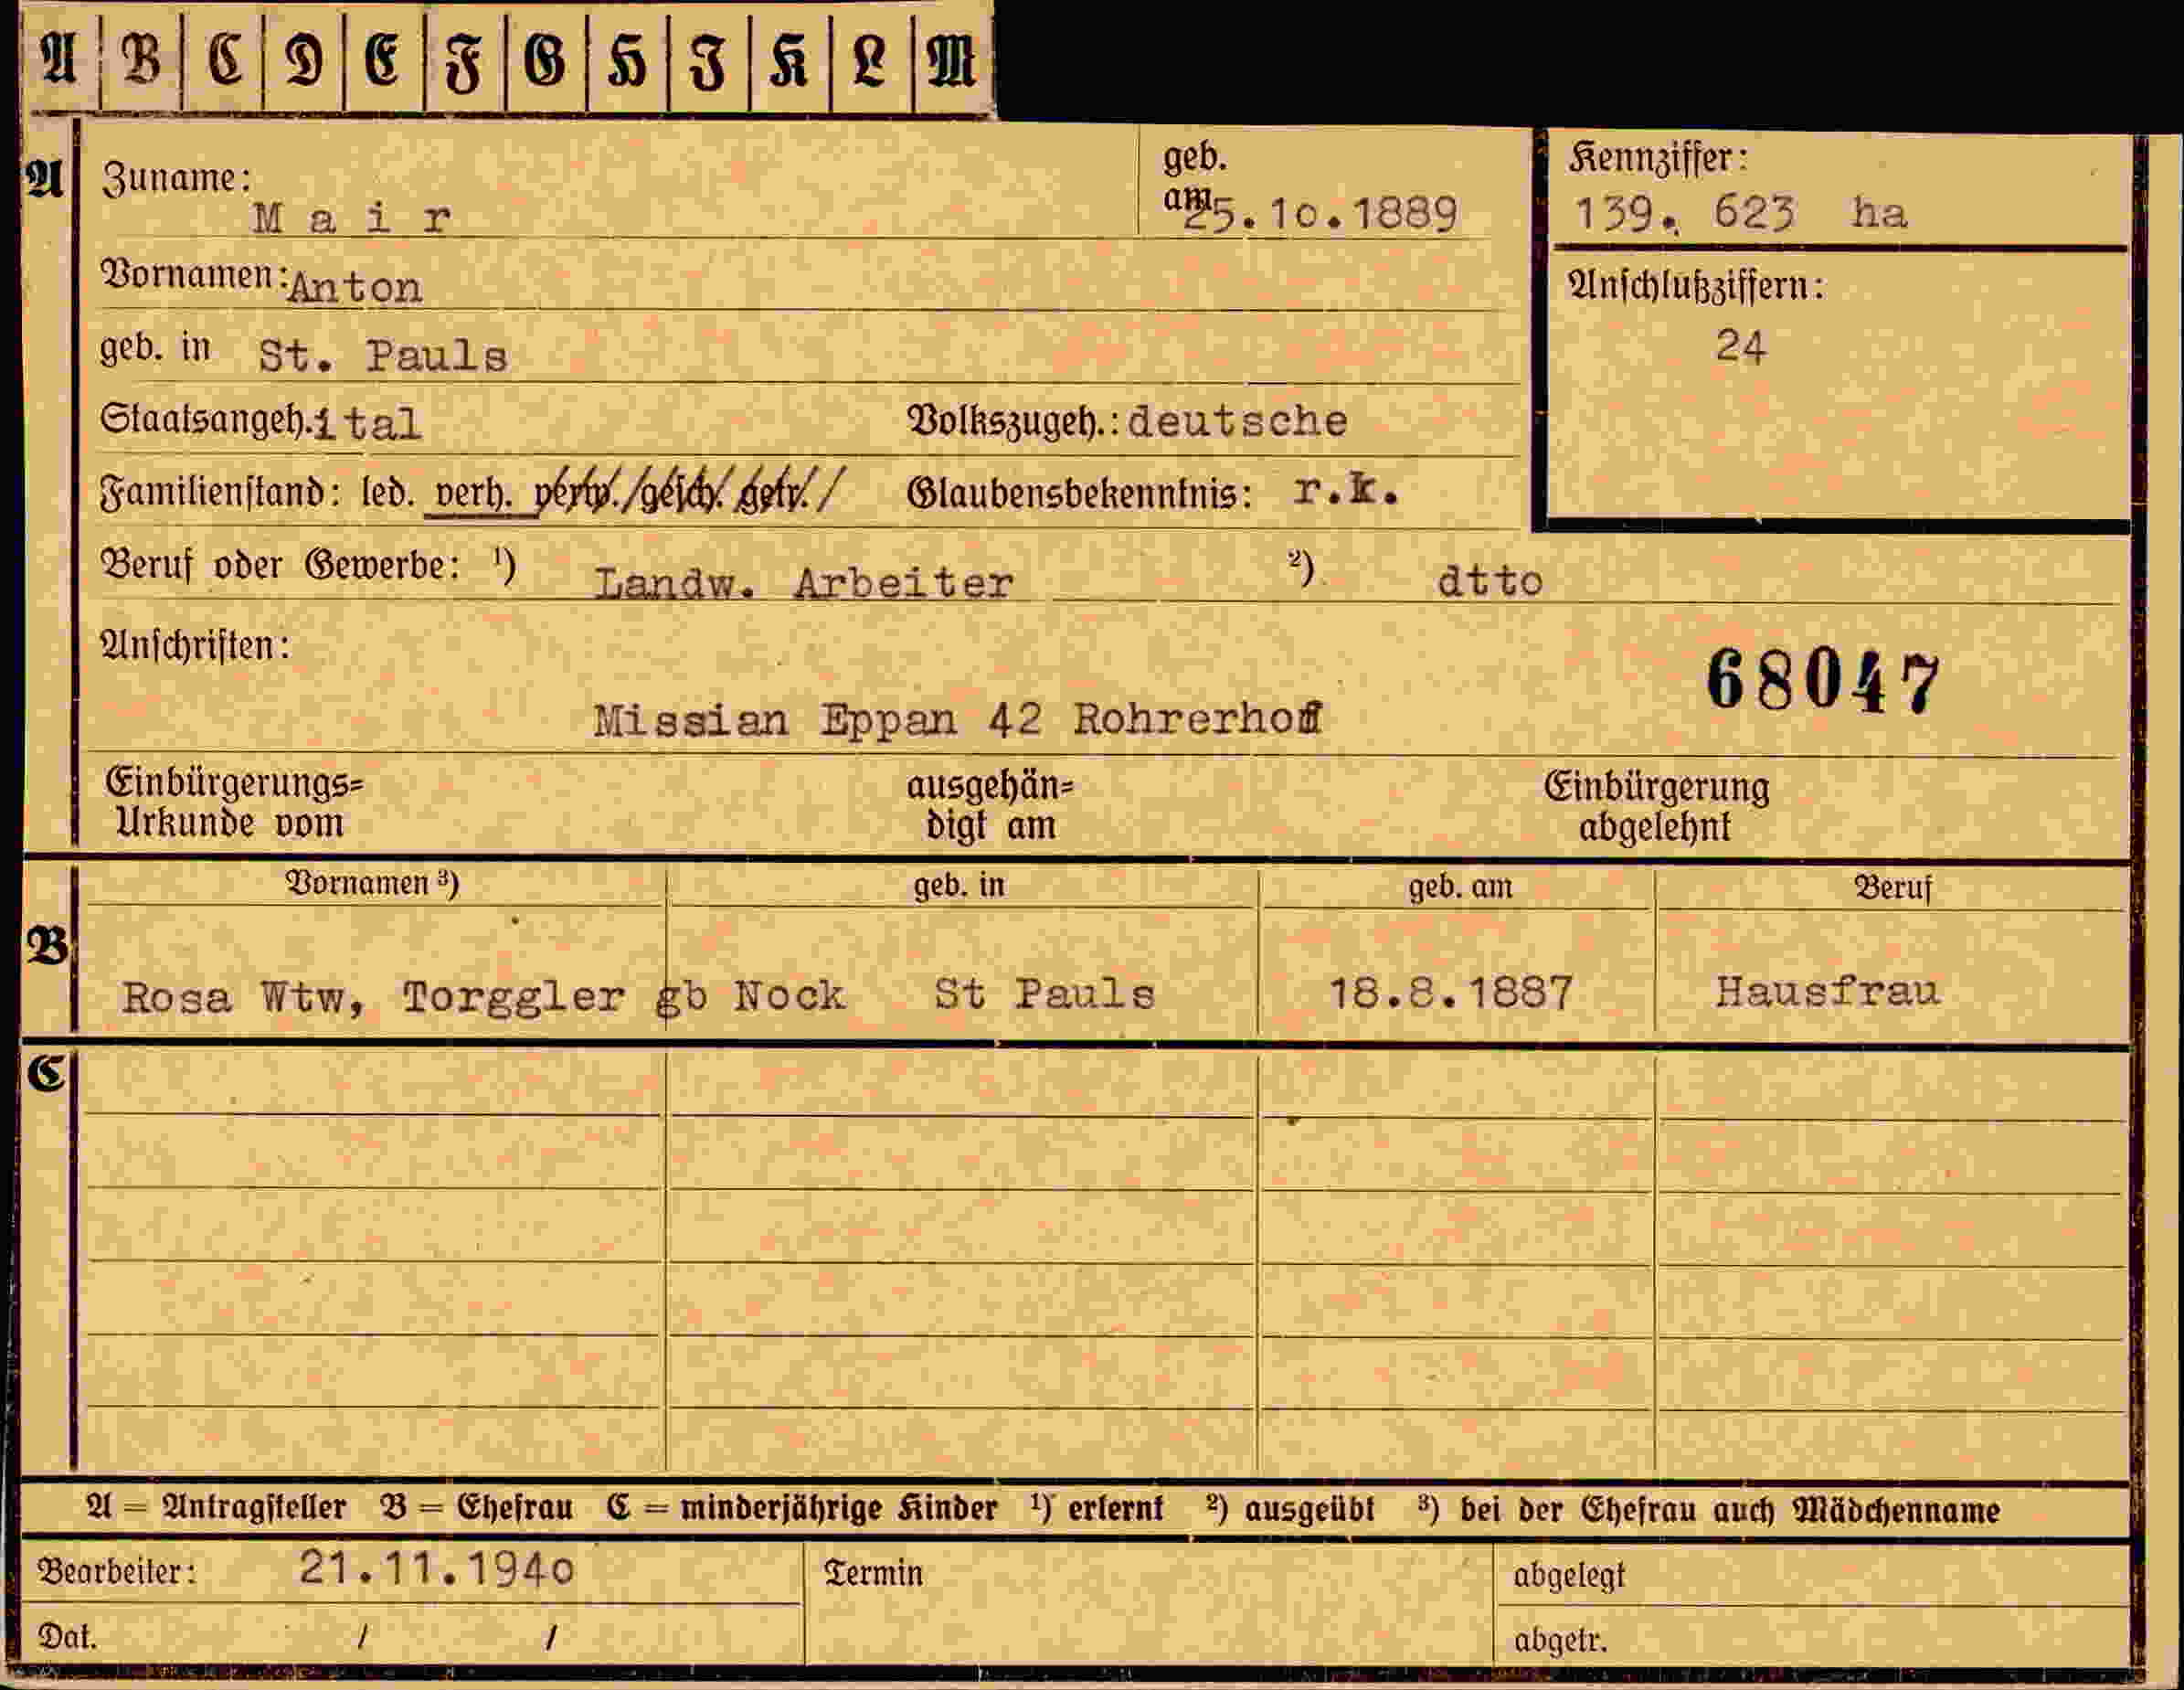 A B C D E F G H I K L M
A Zuname: geb. Kennziffer:
Mair am 25.10.1889 139. 623 ha
Vornamen: Anton Anschlußziffern:
geb. in St. Pauls 24
Staatsangeh. ital Volkszugeh.: deutsche
Familienstand: led. verh. verw. gesch. getr. Glaubensbekenntnis: r.k.
Beruf oder Gewerbe: ¹) Landw. Arbeiter ²) dtto
Anschriften:
68047
Missian Eppan 42 Rohrerhof
Einbürgerungs= ausgehän= Einbürgerung
Urkunde vom digt am abgelehnt
Vornamen ³) geb. in geb. am Beruf
B
Rosa Wtw, Torggler gb Nock St Pauls 18.8.1887 Hausfrau
C
A = Antragsteller B = Ehefrau C = minderjährige Kinder ¹) erlernt ²) ausgeübt ³) bei der Ehefrau auch Mädchenname
Bearbeiter: 21.11.1940 Termin abgelegt
Dat. / / abgetr.